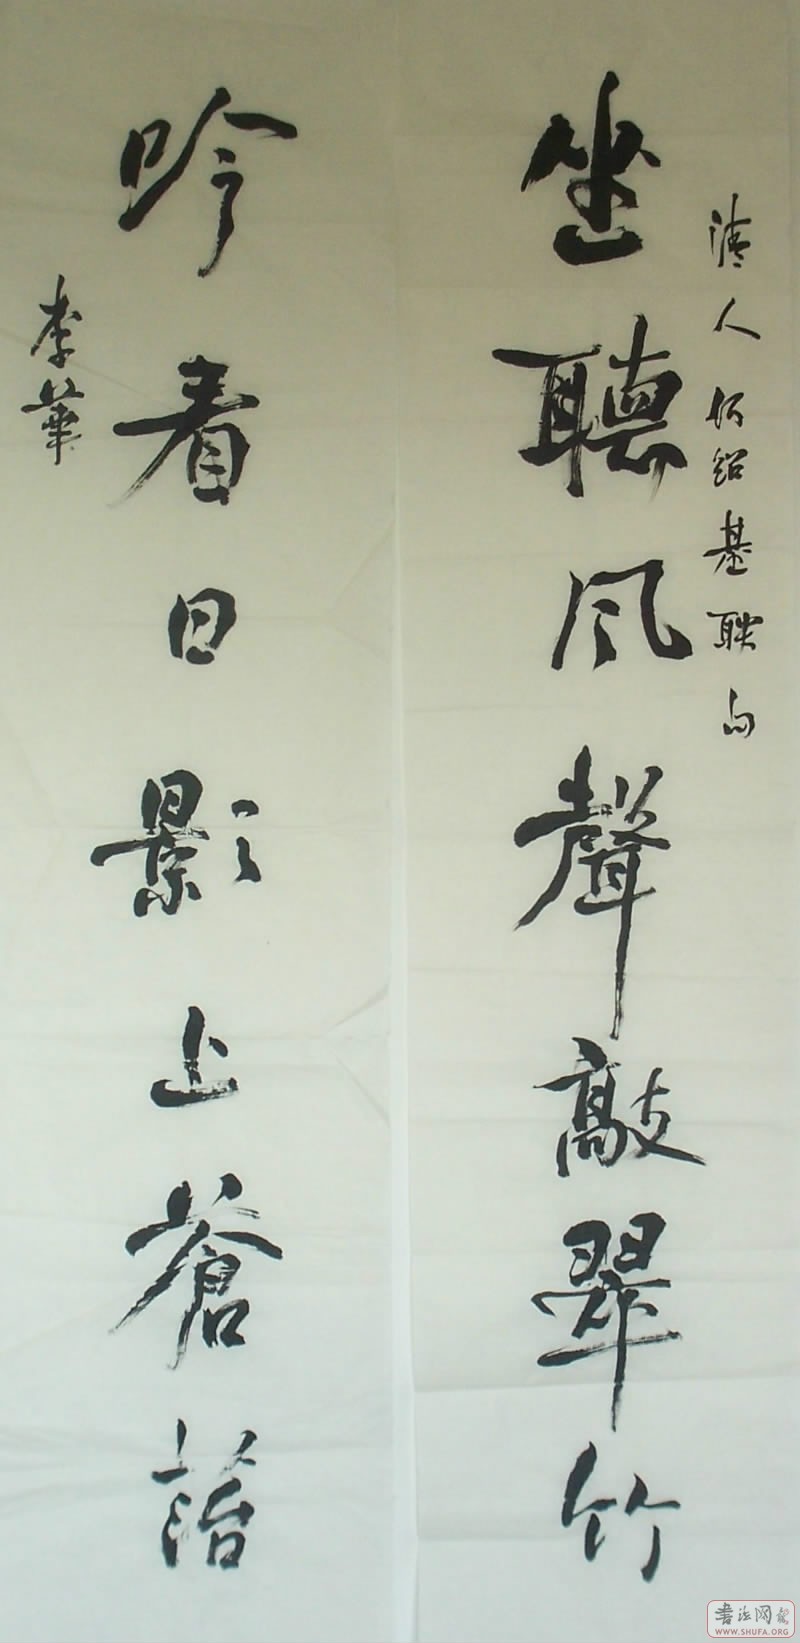 清人何紹基联句
坐聽风聲敲翠竹
吟看日影上蒼菭
李華
書法网
WWW.SHUFA.ORG